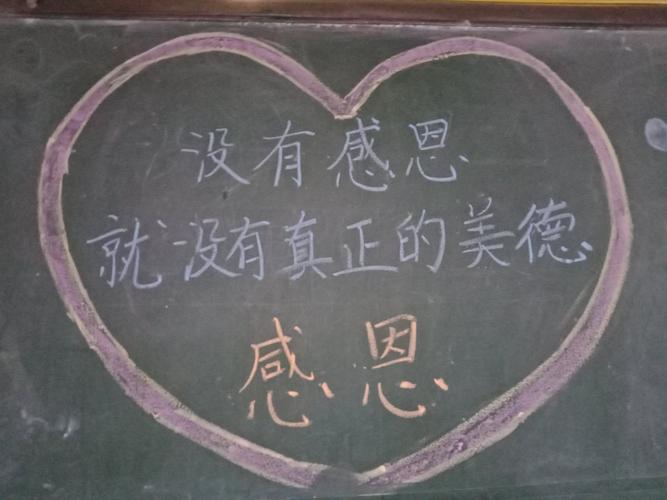 没有感恩
就没有真正的美德
感恩